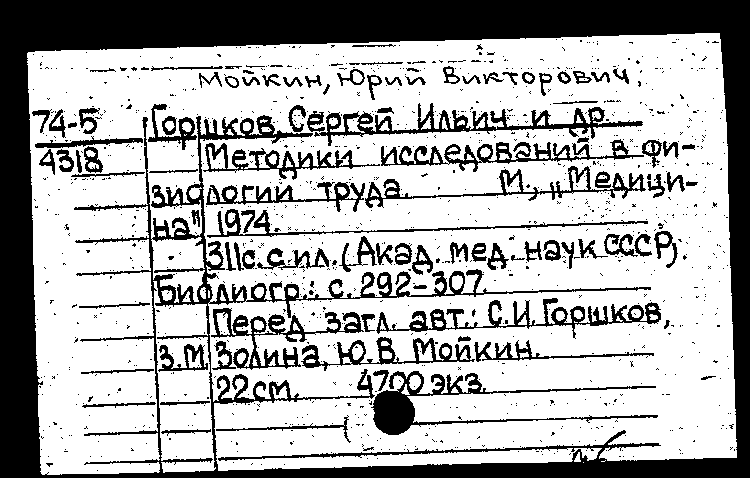 Мойкин, Юрий Викторович.
74-5 Горшков, Сергей Ильич и др.
4318 Методики исследований в фи-
зиологии труда. М., „Медици-
на" 1974.
311с. с ил. (Акад. мед. наук СССР).
Библиогр.: с. 292-307.
Перед загл. авт.: С.И. Горшков,
З.М. Золина, Ю.В. Мойкин.
22см. 4700 экз.